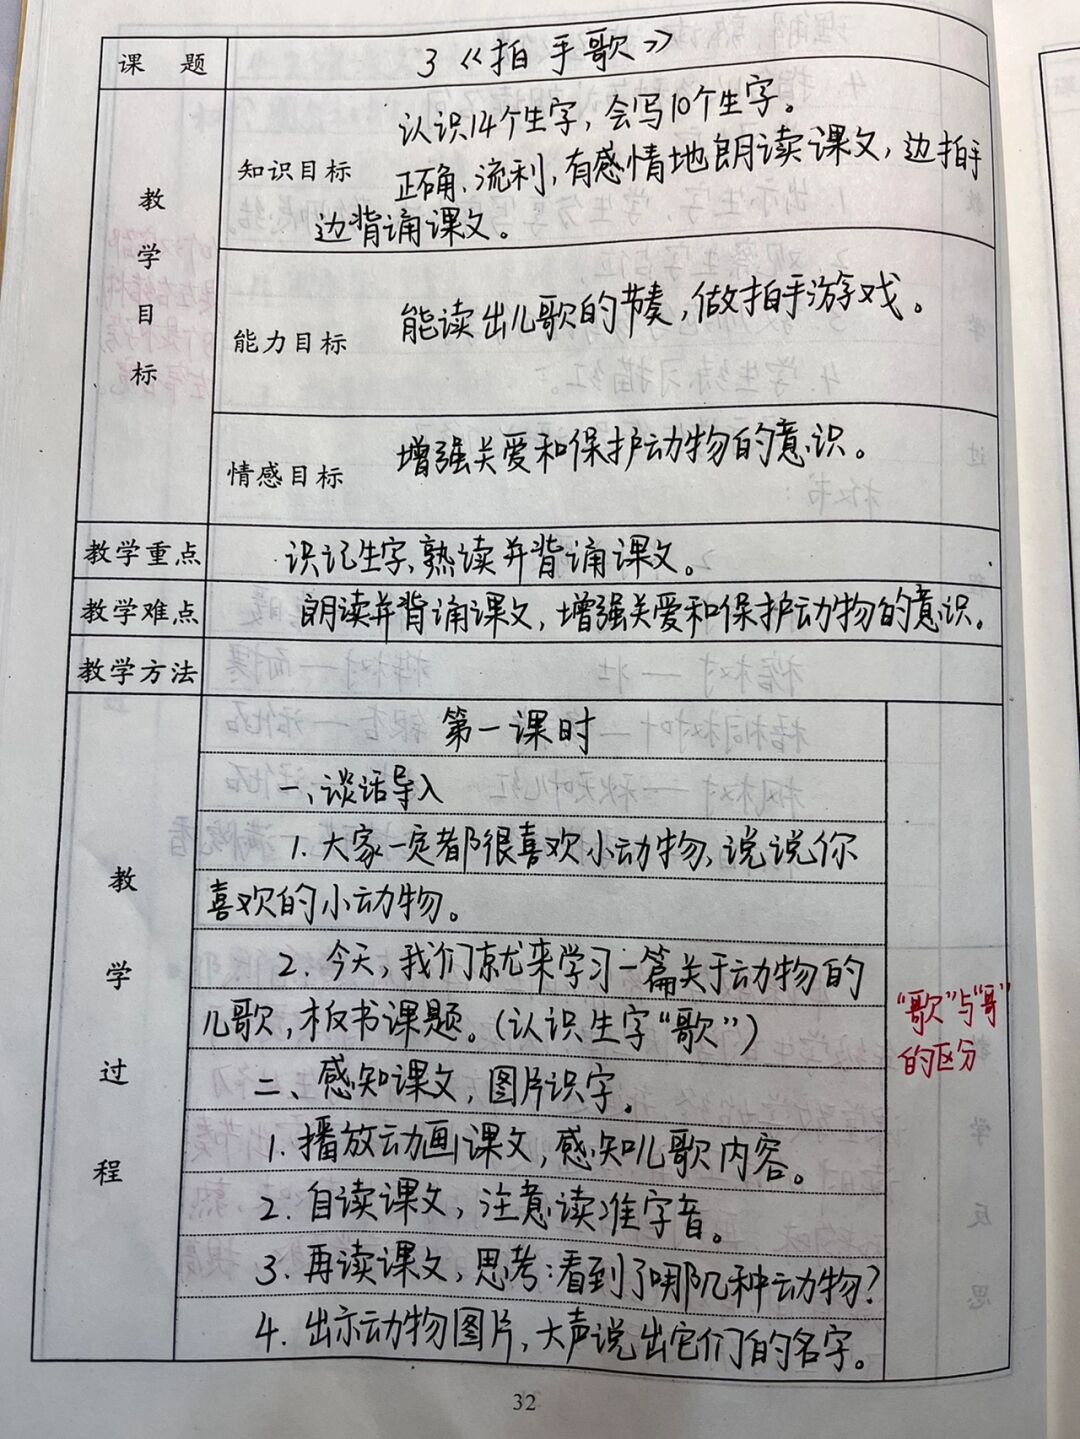 课 题
3《拍手歌》
教学目标
知识目标
认识14个生字，会写10个生字。
正确、流利，有感情地朗读课文，边拍手
边背诵课文。
能力目标
能读出儿歌的节奏，做拍手游戏。
情感目标
增强关爱和保护动物的意识。
教学重点
识记生字，熟读并背诵课文。
教学难点
朗读并背诵课文，增强关爱和保护动物的意识。
教学方法
教学过程
第一课时
一、谈话导入
1. 大家一定都很喜欢小动物，说说你
喜欢的小动物。
2. 今天，我们就来学习一篇关于动物的
儿歌，板书课题。（认识生字“歌”）
二、感知课文，图片识字。
1. 播放动画课文，感知儿歌内容。
2. 自读课文，注意读准字音。
3. 再读课文，思考：看到了哪几种动物？
4. 出示动物图片，大声说出它们的名字。
“歌”与“哥”
的区分
32